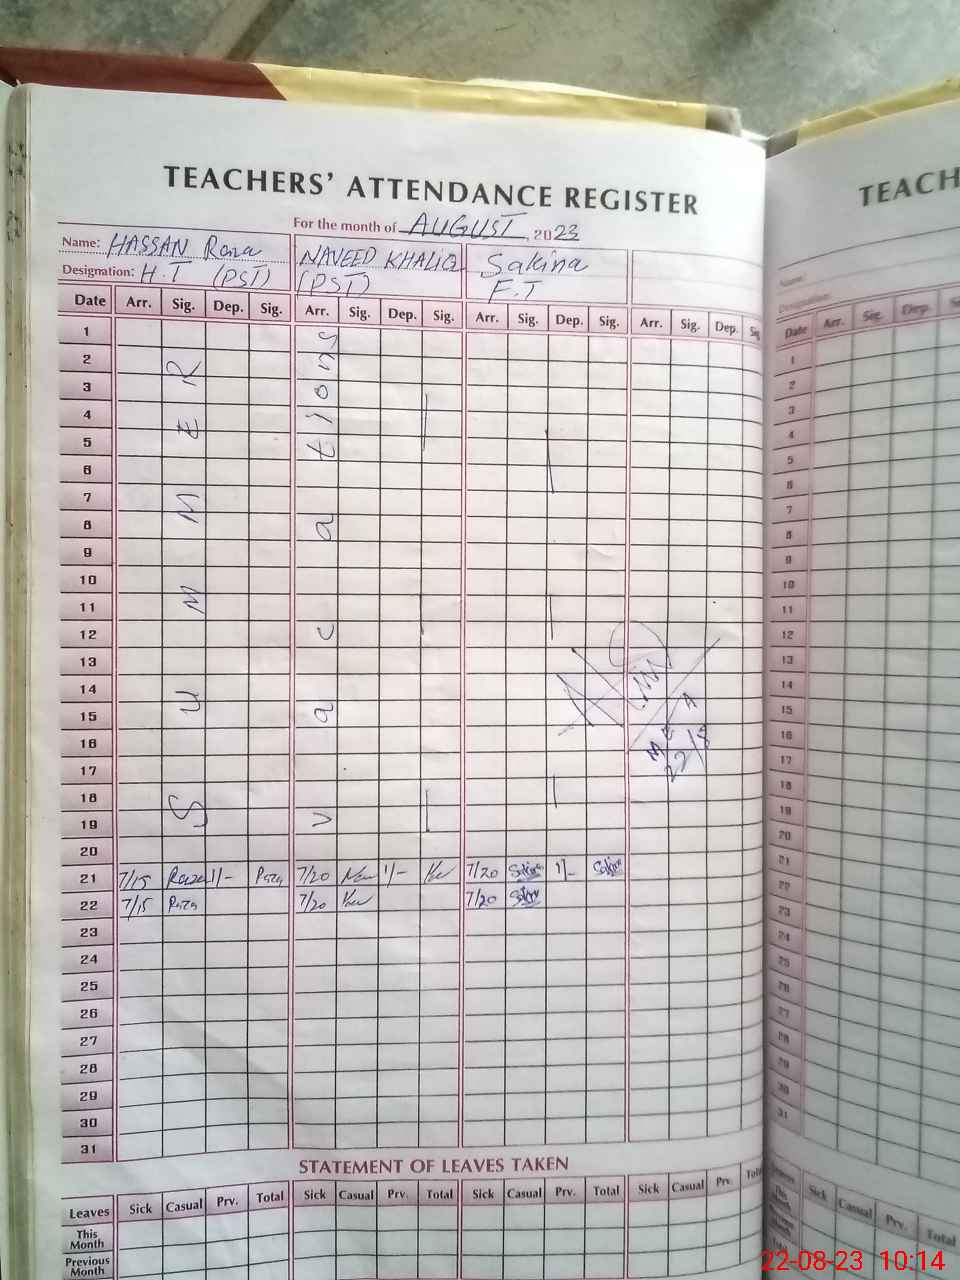 TEACHERS' ATTENDANCE REGISTER
For the month of AUGUST, 2023
Name: HASSAN Raza NAVEED KHALIQ Sakina
Designation: H.T (PST) (PST) F.T
Date Arr. Sig. Dep. Sig. Arr. Sig. Dep. Sig. Arr. Sig. Dep. Sig. Arr. Sig. Dep. Sig
1
2
3
4
5
6
7
8
9
10
11
12
13
14
15
16
17
18
19
20
SUMMER vacations
MEA
22/8
21 7/15 Raza 1/- Raza 7/20 1/- 7/20 Sakina 1/- Sakina
22 7/15 Raza 7/20 7/20 Sakina
23
24
25
26
27
28
29
30
31
STATEMENT OF LEAVES TAKEN
Leaves Sick Casual Prv. Total Sick Casual Prv. Total Sick Casual Prv. Total Sick Casual Prv. Total
This Month
Previous Month
TEACH
Name:
Designation:
Date Arr. Sig. Dep. Si
1
2
3
4
5
6
7
8
9
10
11
12
13
14
15
16
17
18
19
20
21
22
23
24
25
26
27
28
29
30
31
Leaves Sick Casual Prv. Total
This Month
22-08-23 10:14